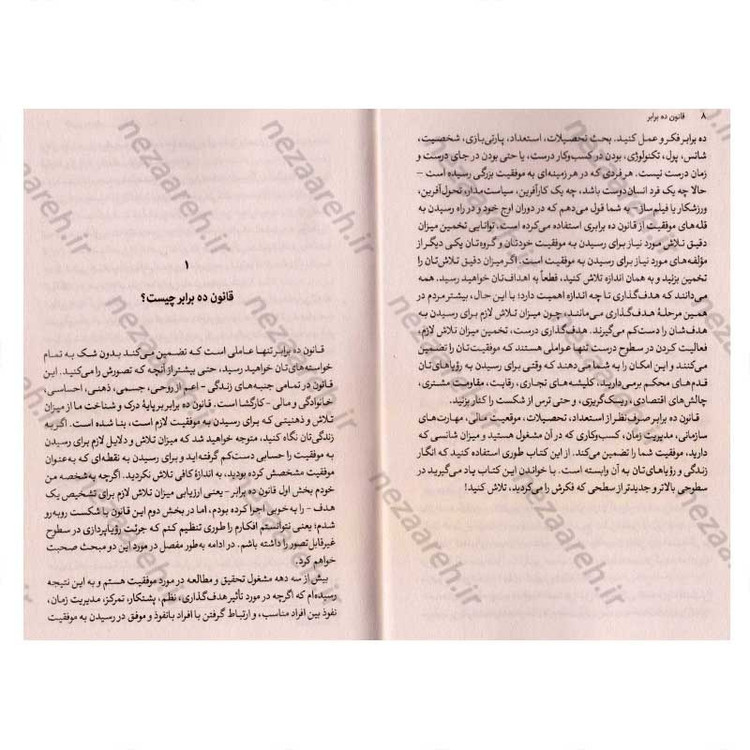 ۸ قانون ده برابر
ده برابر فکر و عمل کنید. بحث تحصیلات، استعداد، پارتی‌بازی، شخصیت،
شانس، پول، تکنولوژی، بودن در کسب‌وکار درست، یا حتی بودن در جای درست و
زمان درست نیست. هر فردی که در هر زمینه‌ای به موفقیت بزرگی رسیده است –
حالا چه یک فرد انسان‌دوست باشد، چه یک کارآفرین، سیاست‌مدار، تحول‌آفرین،
ورزشکار یا فیلم‌ساز – به شما قول می‌دهم که در دوران اوج خود و در راه رسیدن به
قله‌های موفقیت از قانون ده برابری استفاده می‌کرده است. توانایی تخمین میزان
دقیق تلاش مورد نیاز برای رسیدن به موفقیت خودتان و گروه‌تان یکی دیگر از
مؤلفه‌های مورد نیاز برای رسیدن به موفقیت است. اگر میزان دقیق تلاش‌تان را
تخمین بزنید و به همان اندازه تلاش کنید، قطعاً به اهداف‌تان خواهید رسید. همه
می‌دانند که هدف‌گذاری تا چه اندازه اهمیت دارد؛ با این حال، بیشتر مردم در
همین مرحلهٔ هدف‌گذاری می‌مانند، چون میزان تلاش لازم برای رسیدن به
هدف‌شان را دست‌کم می‌گیرند. هدف‌گذاری درست، تخمین میزان تلاش لازم،
فعالیت کردن در سطوح درست تنها عواملی هستند که موفقیت‌تان را تضمین
می‌کنند و این امکان را به شما می‌دهند که وقتی برای رسیدن به رؤیاهای‌تان
قدم‌های محکم برمی‌دارید، کلیشه‌های تجاری، رقابت، مقاومت مشتری،
چالش‌های اقتصادی، ریسک‌گریزی، و حتی ترس از شکست را کنار بزنید.
قانون ده برابر صرف‌نظر از استعداد، تحصیلات، موقعیت مالی، مهارت‌های
سازمانی، مدیریت زمان، کسب‌وکاری که در آن مشغول هستید و میزان شانسی که
دارید، موفقیت شما را تضمین می‌کند. از این کتاب طوری استفاده کنید که انگار
زندگی و رؤیاهای‌تان به آن وابسته است. با خواندن این کتاب یاد می‌گیرید در
سطوحی بالاتر و جدیدتر از سطحی که فکرش را می‌کردید، تلاش کنید!
۱
قانون ده برابر چیست؟
قانون ده برابر تنها عاملی است که تضمین می‌کند بدون شک به تمام
خواسته‌های‌تان خواهید رسید، حتی بیشتر از آنچه که تصورش را می‌کنید. این
قانون در تمامی جنبه‌های زندگی – اعم از روحی، جسمی، ذهنی، احساسی،
خانوادگی و مالی – کارگشا است. قانون ده برابر بر پایهٔ درک و شناخت ما از میزان
تلاش و ذهنیتی که برای رسیدن به موفقیت لازم است، بنا شده است. اگر به
زندگی‌تان نگاه کنید، متوجه خواهید شد که میزان تلاش و دلایل لازم برای رسیدن
به موفقیت را حسابی دست‌کم گرفته‌اید و برای رسیدن به نقطه‌ای که به‌عنوان
موفقیت مشخصش کرده بودید، به اندازهٔ کافی تلاش نکردید. اگرچه به‌شخصه من
خودم بخش اول قانون ده برابر – یعنی ارزیابی میزان تلاش لازم برای تشخیص یک
هدف – را به‌خوبی اجرا کرده بودم، اما در بخش دوم این قانون با شکست روبه‌رو
شدم؛ یعنی نتوانستم افکارم را طوری تنظیم کنم که جرئت رؤیاپردازی در سطوح
غیرقابل تصور را داشته باشم. در ادامه به‌طور مفصل در مورد این دو مبحث صحبت
خواهم کرد.
بیش از سه دهه مشغول تحقیق و مطالعه در مورد موفقیت هستم و به این نتیجه
رسیده‌ام که اگرچه در مورد تأثیر هدف‌گذاری، نظم، پشتکار، تمرکز، مدیریت زمان،
نفوذ بین افراد مناسب، و ارتباط گرفتن با افراد بانفوذ و موفق در رسیدن به موفقیت
nezaareh.ir